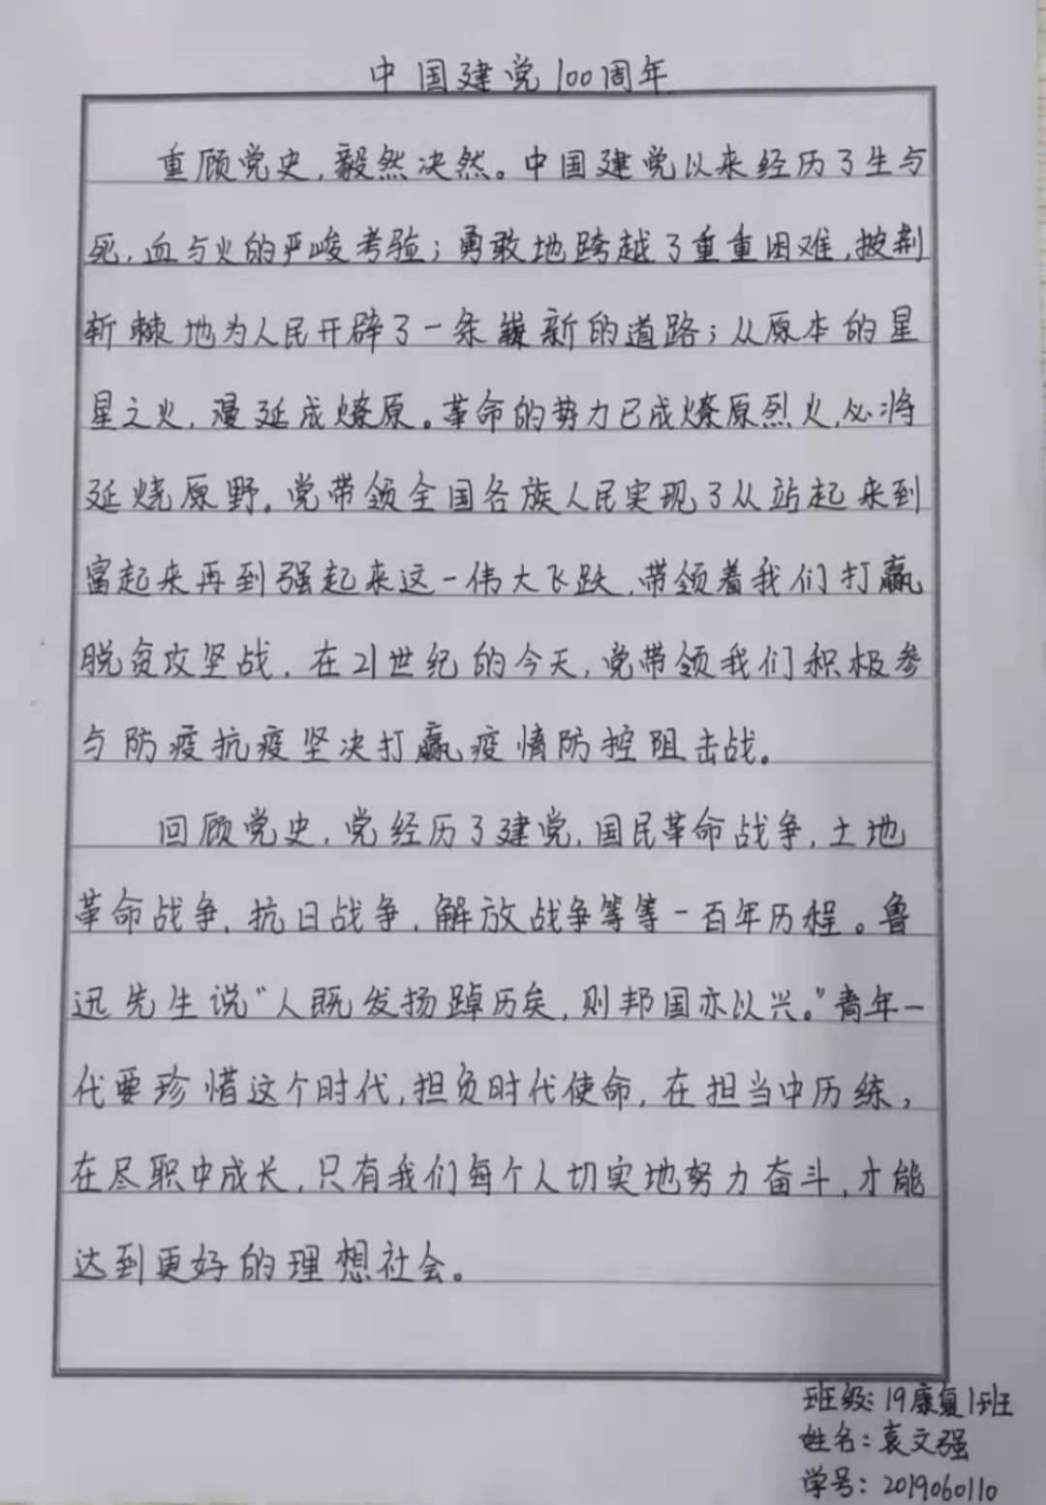 中国建党100周年
重顾党史,毅然决然。中国建党以来经历了生与
死,血与火的严峻考验;勇敢地跨越了重重困难,披荆
斩棘地为人民开辟了一条崭新的道路;从原本的星
星之火,漫延成燎原。革命的势力已成燎原烈火,必将
延烧原野。党带领全国各族人民实现了从站起来到
富起来再到强起来这一伟大飞跃,带领着我们打赢
脱贫攻坚战,在21世纪的今天,党带领我们积极参
与防疫抗疫坚决打赢疫情防控阻击战。
回顾党史,党经历了建党,国民革命战争,土地
革命战争,抗日战争,解放战争等等一百年历程。鲁
迅先生说“人既发扬踔历矣,则邦国亦以兴。”青年一
代要珍惜这个时代,担负时代使命,在担当中历练,
在尽职中成长,只有我们每个人切实地努力奋斗,才能
达到更好的理想社会。
班级:19康复1班
姓名:袁文强
学号:2019060110